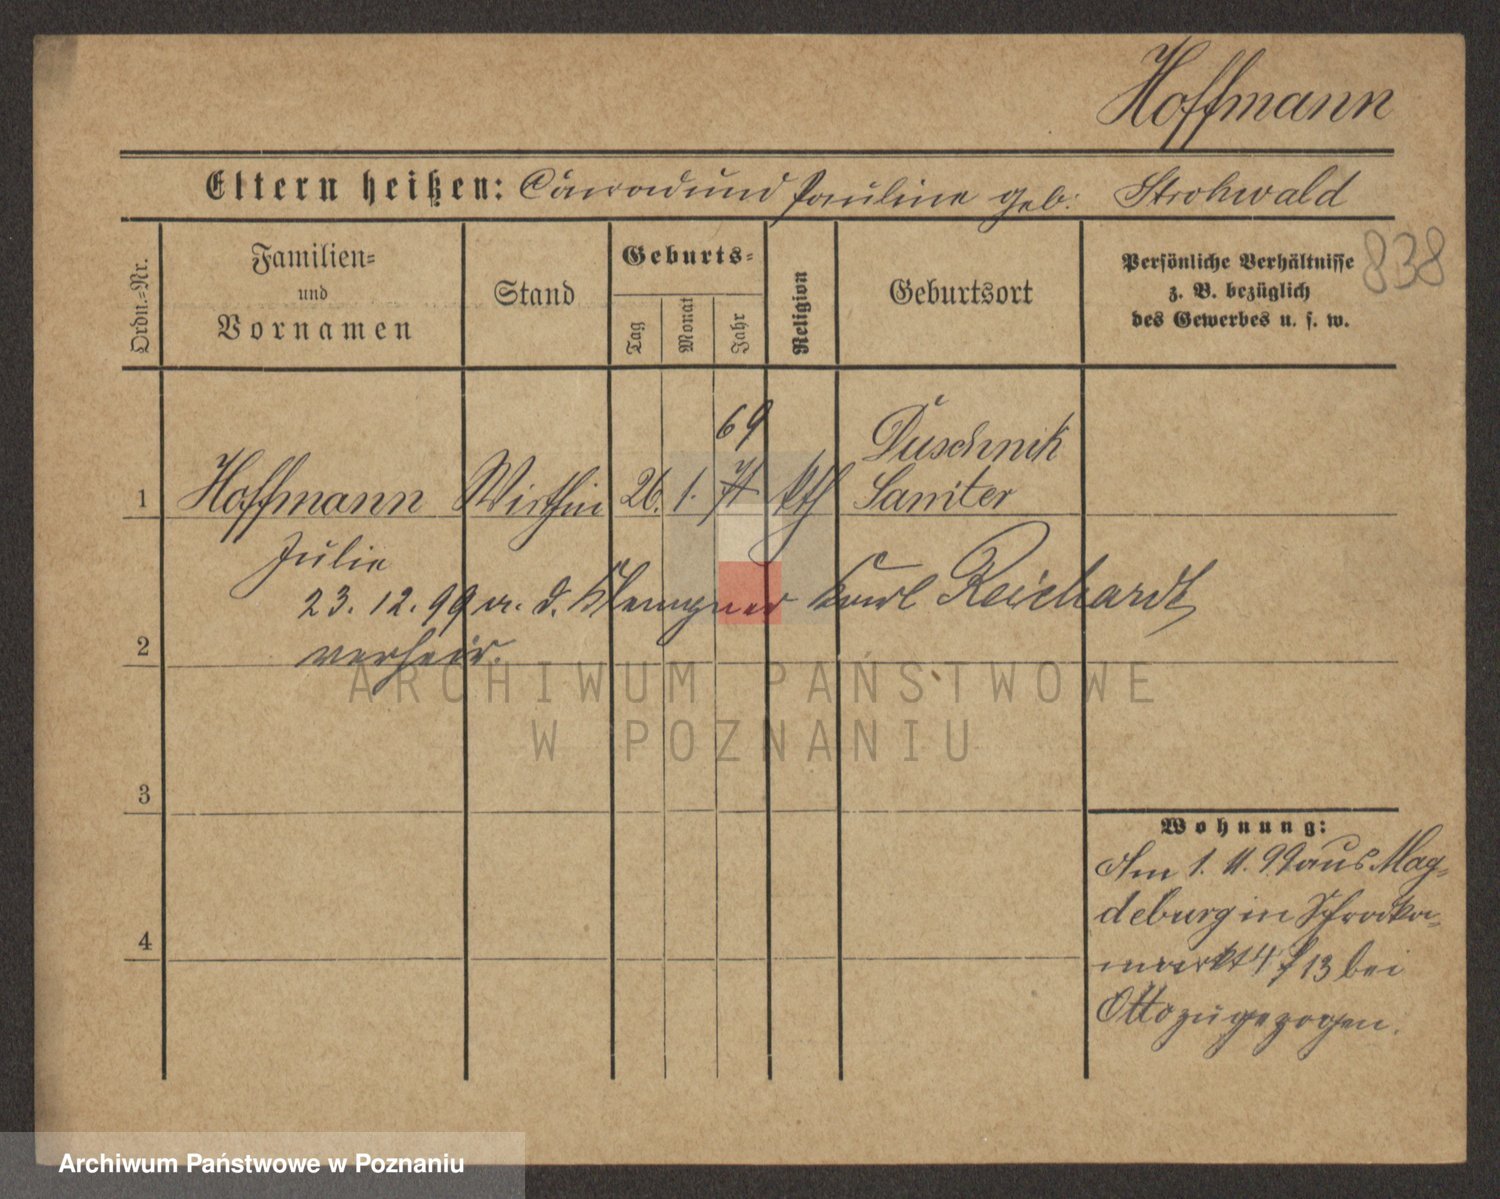 Hoffmann
Eltern heißen: Conrad und Pauline geb. Strohwald
838
Ordn.=Nr.
Familien=
und
Vornamen
Stand
Geburts=
Tag
Monat
Jahr
Religion
Geburtsort
Persönliche Verhältnisse
z. B. bezüglich
des Gewerbes u. s. w.
69
Duschnik
1 Hoffmann Wirthin 26. 1. 71 kth Samter
Julie
23. 12. 99 m. d. Klempner Karl Reichardt
2 verheir.
ARCHIWUM PAŃSTWOWE
W POZNANIU
3
Wohnung:
Am 1. 11. 99 aus Mag=
deburg in Schrodka=
markt 4 / 13 bei
Otto zugezogen.
4
Archiwum Państwowe w Poznaniu